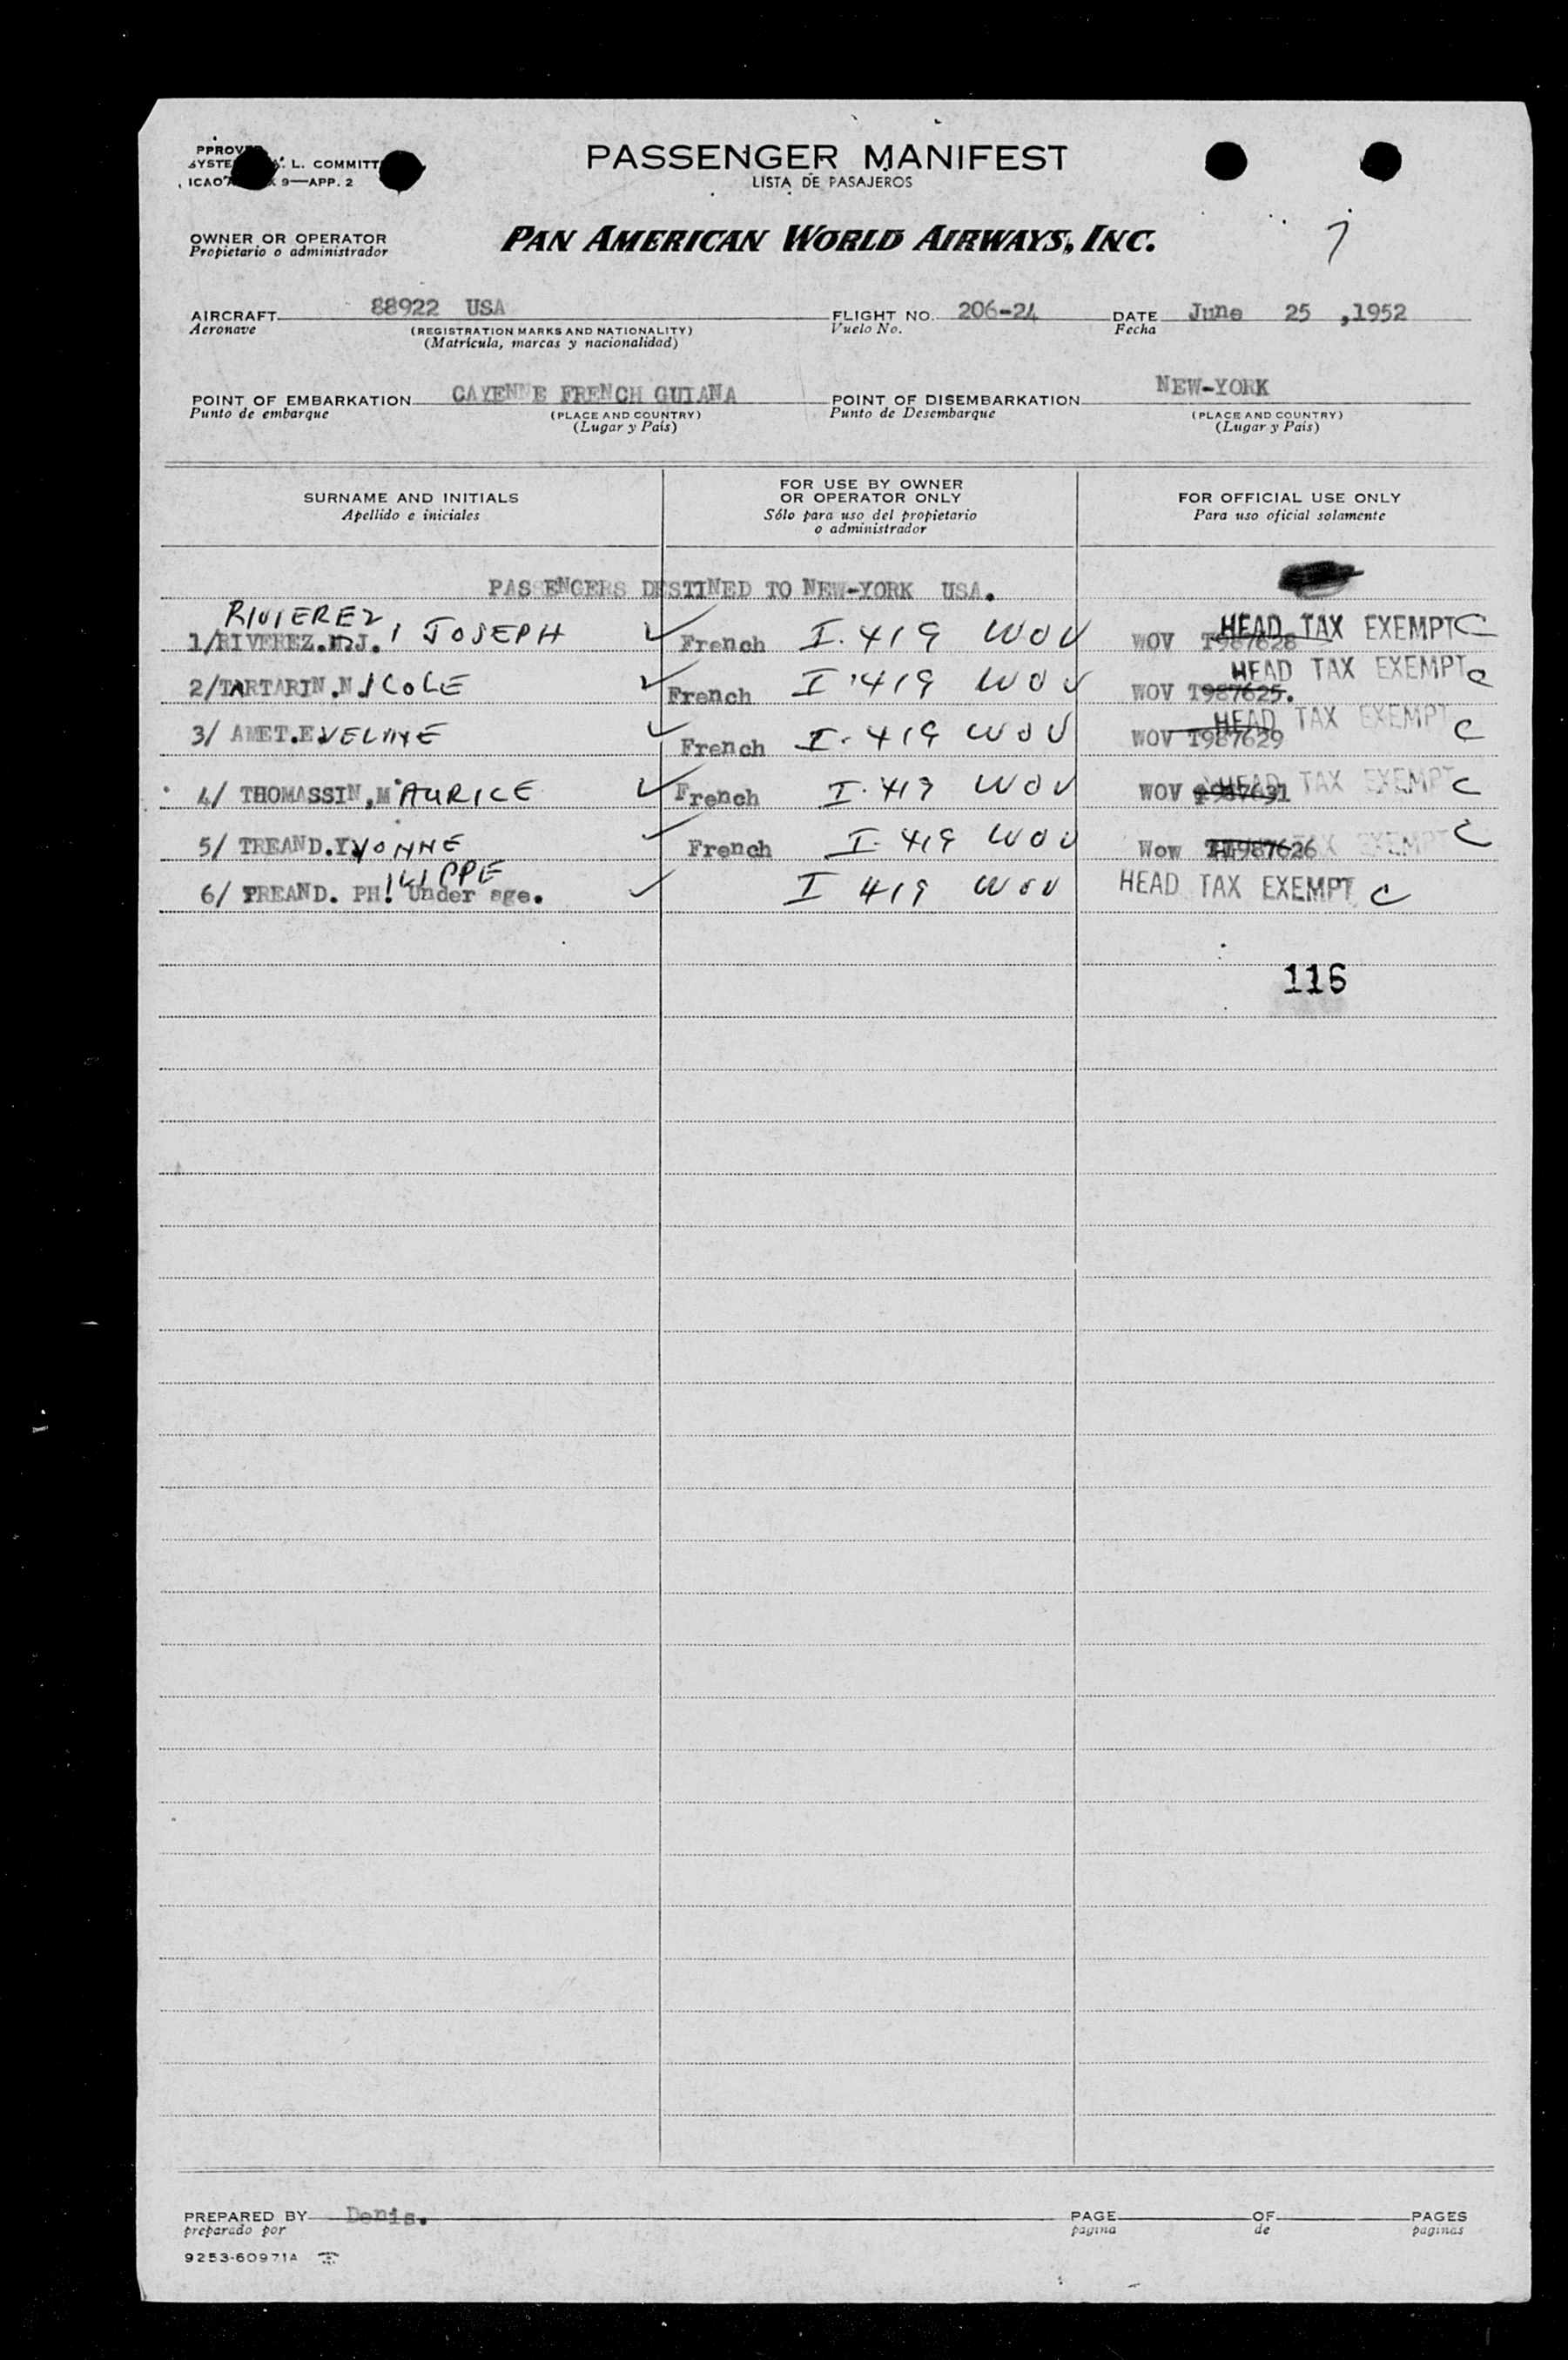 PPROV
SYSTE L. COMMITT
ICAO 9—APP. 2
PASSENGER MANIFEST
LISTA DE PASAJEROS
OWNER OR OPERATOR
Propietario o administrador
PAN AMERICAN WORLD AIRWAYS, INC.
7
AIRCRAFT 88922 USA FLIGHT NO. 206-24 DATE June 25 ,1952
Aeronave (REGISTRATION MARKS AND NATIONALITY) Vuelo No. Fecha
(Matrícula, marcas y nacionalidad)
POINT OF EMBARKATION CAYENNE FRENCH GUIANA POINT OF DISEMBARKATION NEW-YORK
Punto de embarque (PLACE AND COUNTRY) Punto de Desembarque (PLACE AND COUNTRY)
(Lugar y País) (Lugar y País)
SURNAME AND INITIALS
Apellido e iniciales
FOR USE BY OWNER
OR OPERATOR ONLY
Sólo para uso del propietario
o administrador
FOR OFFICIAL USE ONLY
Para uso oficial solamente
PASSENGERS DESTINED TO NEW-YORK USA.
RIVIEREZ, JOSEPH
1/RIVEREZ. J. French I.419 WOV WOV T987628 HEAD TAX EXEMPT C
2/TARTARIN.NICOLE French I 419 WOV WOV T987625. HEAD TAX EXEMPT C
3/ AMET.EVELYNE French I.419 WOV WOV T987629 HEAD TAX EXEMPT C
4/ THOMASSIN,MAURICE French I.419 WOV WOV T987631 HEAD TAX EXEMPT C
5/ TREAND.YVONNE French I.419 WOV Wow T987626 TAX EXEMPT C
6/ TREAND. PHILIPPE Under age. I 419 WOV HEAD TAX EXEMPT C
116
PREPARED BY Denis. PAGE OF PAGES
preparado por pagina de paginas
9253-60971A